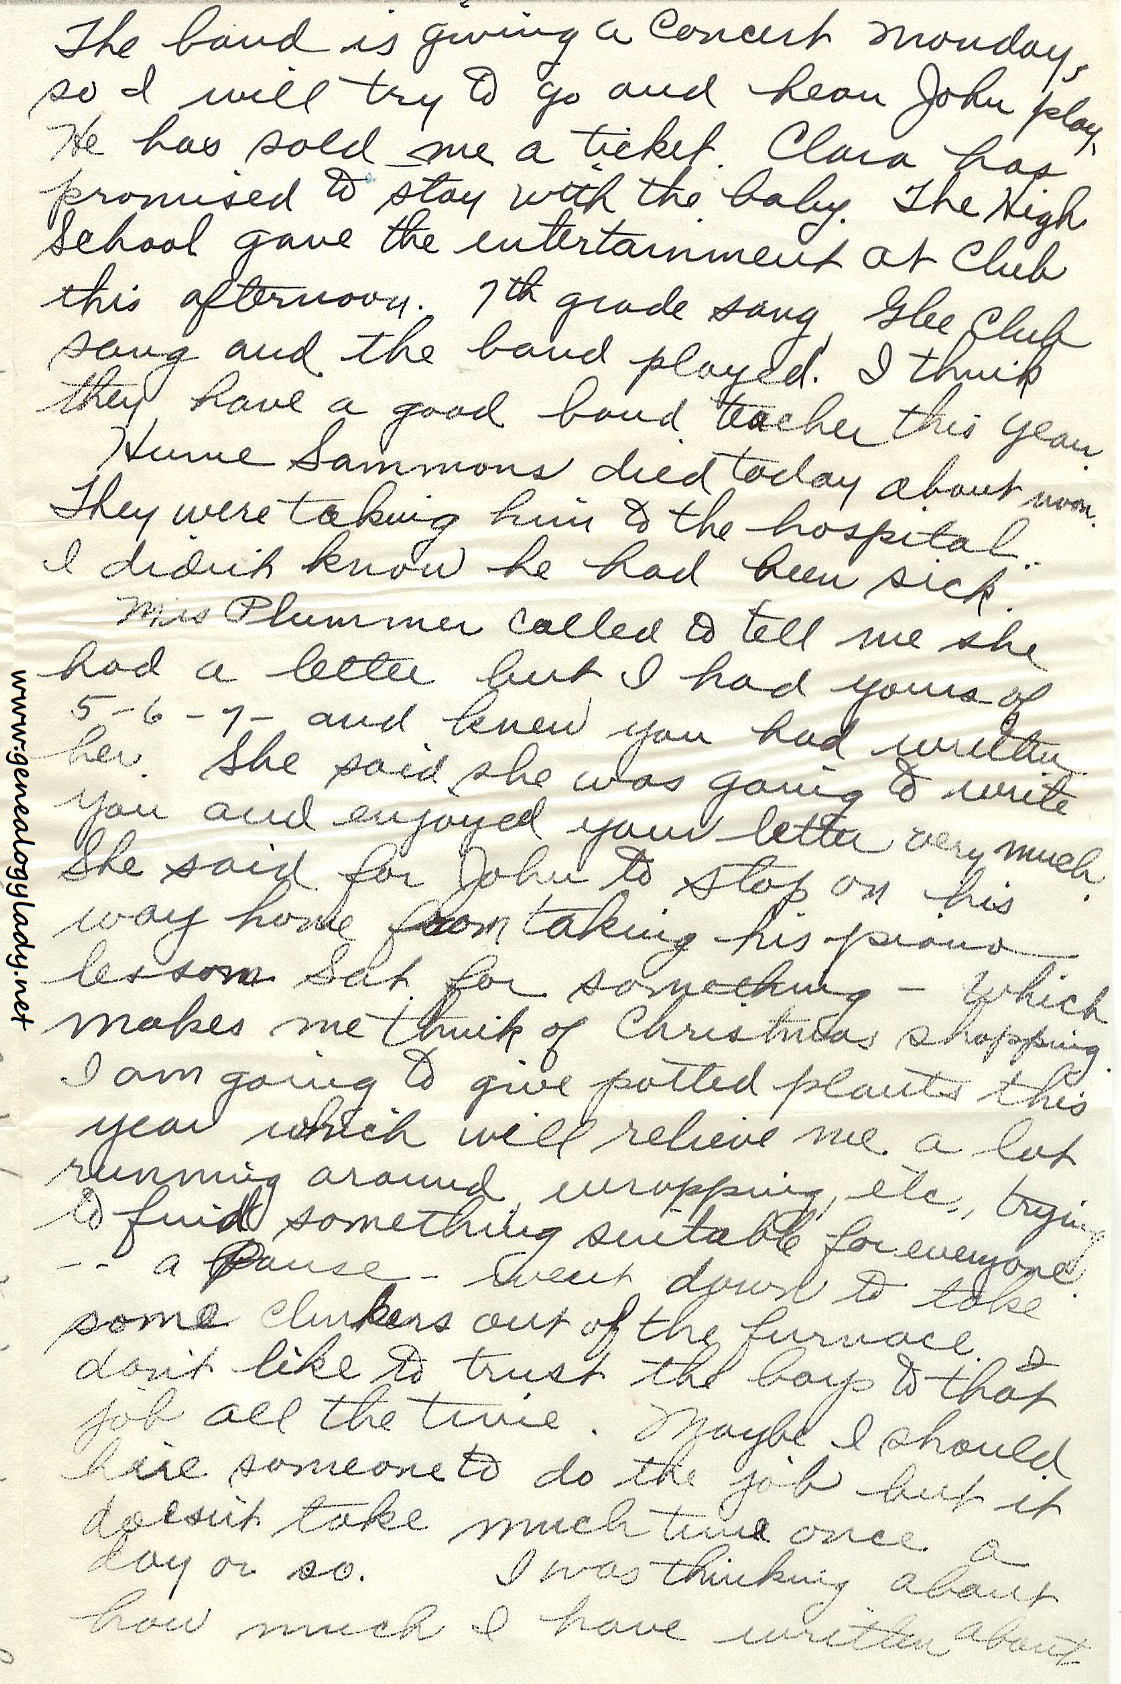 The band is giving a Concert Monday,
so I will try to go and hear John play.
He has sold me a ticket. Clara has
promised to stay with the baby. The High
School gave the entertainment at Club
this afternoon. 7th grade sang, Glee Club
sang and the band played. I think
they have a good band teacher this year.
Hume Sammons died today about noon.
They were taking him to the hospital.
I didn't know he had been sick.
Mrs Plummer called to tell me she
had a letter but I had yours of
5-6-7- and knew you had written
her. She said she was going to write
you and enjoyed your letter very much.
She said for John to stop on his
way home from taking his piano
lesson Sat. for something - which
makes me think of Christmas shopping.
I am going to give potted plants this
year which will relieve me a lot
running around, wrapping, etc., trying
to find something suitable for everyone.
-- a Pause - went down to take
some clinkers out of the furnace. I
don't like to trust the boys to that
job all the time. Maybe I should
hire someone to do the job but it
doesn't take much time once a
day or so. I was thinking about
how much I have written about
www.genealogylady.net